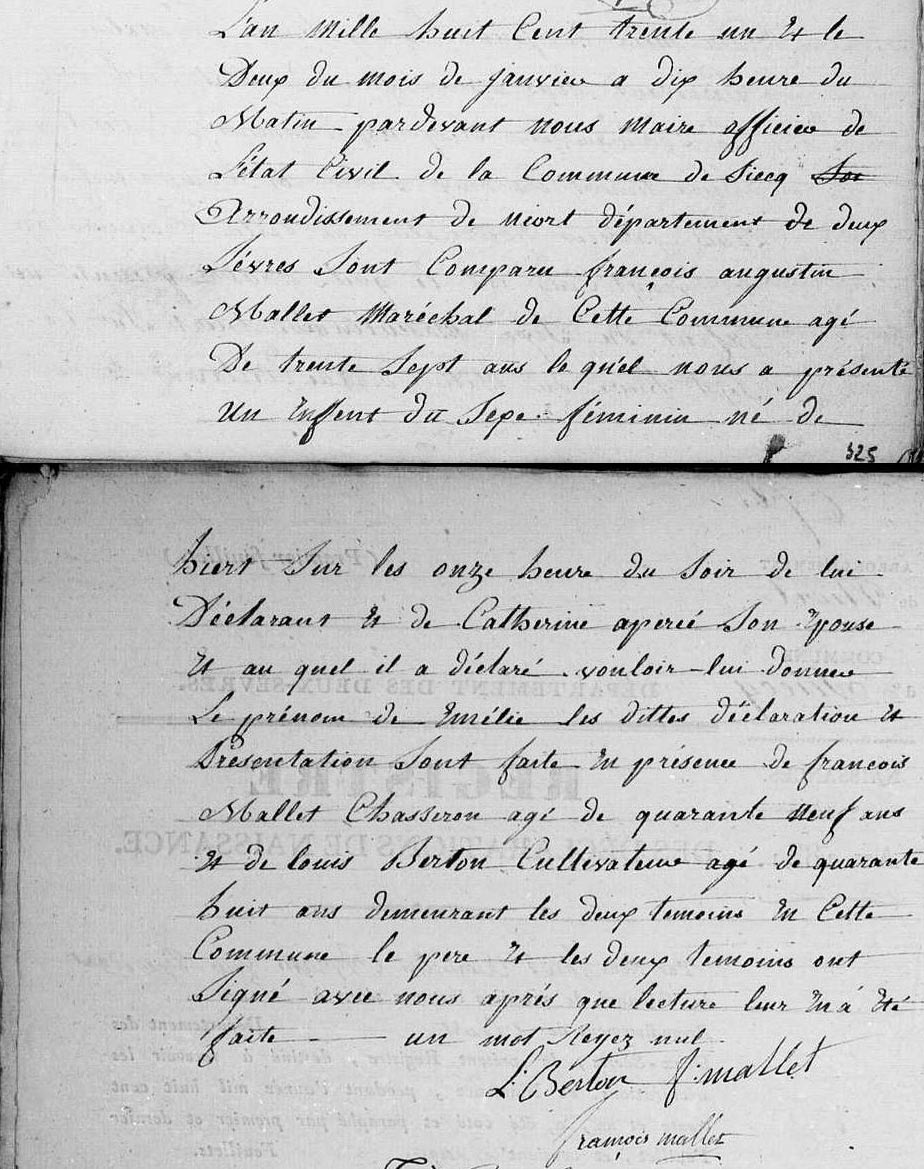 L'an mille huit Cent trente un Et le
Deux du mois de janvier a dix heure du
Matin pardevant nous maire officier de
L'état Civil de la Commune de Siecq
Arrondissement de niort département de deux
Sévres Sont Comparu françois augustin
Mallet Maréchal de Cette Commune agé
De trente Sept ans le qu'el nous a présenté
un Enffent du Sexe féminin né de
325
hiert Sur les onze heure du Soir de lui
Déclarant Et de Catherine apercé Son Epouse
Et au quel il a déclaré vouloir lui donner
Le prénom de Emélie les dittes déclaration Et
Présentation Sont faite En présence de francois
Mallet Chasseron agé de quarante neuf ans
Et de louis Berton Cultivateur agé de quarante
huit ans demeurant les deux temoins En Cette
Commune le pere Et les deux temoins ont
Signé avec nous aprés que lecture leur En á Eté
faite un mot Reyez nul
L. Berton f. mallet
françois mallet